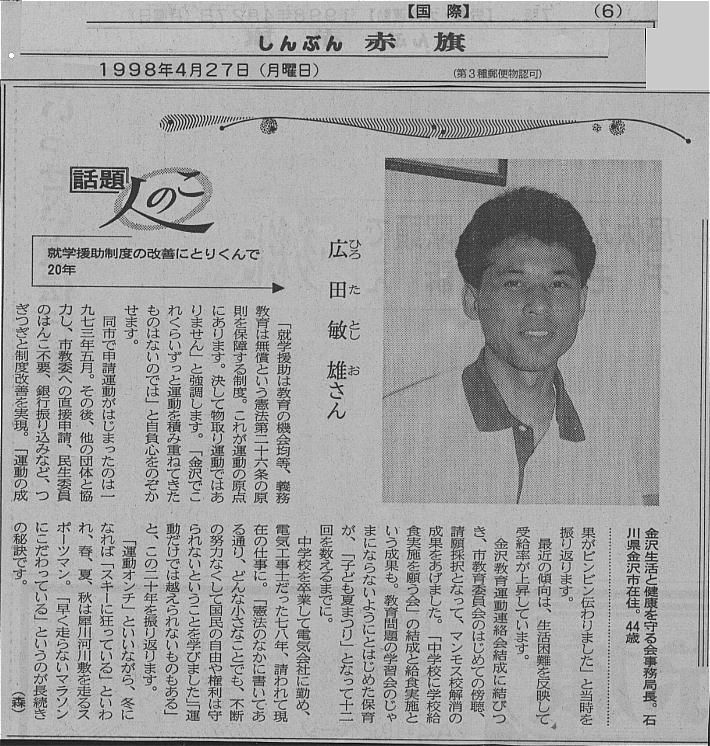 【国 際】
(6)
しんぶん 赤 旗
1998年4月27日(月曜日)
(第3種郵便物認可)
話題
人のこ
就学援助制度の改善にとりくんで
20年
広田敏雄さん
ひろ た とし お
金沢生活と健康を守る会事務局長。石
川県金沢市在住。44歳
「就学援助は教育の機会均等、義務
教育は無償という憲法第二十六条の原
則を保障する制度。これが運動の原点
にあります。決して物取り運動ではあ
りません」と強調します。「金沢でこ
れくらいずっと運動を積み重ねてきた
ものはないのでは」と自負心をのぞか
せます。
同市で申請運動がはじまったのは一
九七三年五月。その後、他の団体と協
力し、市教委への直接申請、民生委員
のはんこ不要、銀行振り込みなど、つ
ぎつぎと制度改善を実現。「運動の成
果がビンビン伝わりました」と当時を
振り返ります。
最近の傾向は、生活困難を反映して
受給率が上昇しています。
金沢教育運動連絡会結成に結びつ
き、市教育委員会のはじめての傍聴、
請願採択となって、マンモス校解消の
成果をあげました。「中学校に学校給
食実施を願う会」の結成と給食実施と
いう成果も。教育問題の学習会のじゃ
まにならないようにとはじめた保育
が、「子ども夏まつり」となって十二
回を数えるまでに。
中学校を卒業して電気会社に勤め、
電気工事士だった七八年、請われて現
在の仕事に。「憲法のなかに書いてあ
る通り、どんな小さなことでも、不断
の努力なくして国民の自由や権利は守
られないということを学びました」「運
動だけでは越えられないものもある」
と、この二十年を振り返ります。
「運動オンチ」といいながら、冬に
なれば「スキーに狂っている」といわ
れ、春、夏、秋は犀川河川敷を走るス
ポーツマン。「早く走らないマラソン
にこだわっている」というのが長続き
の秘訣です。
(森)